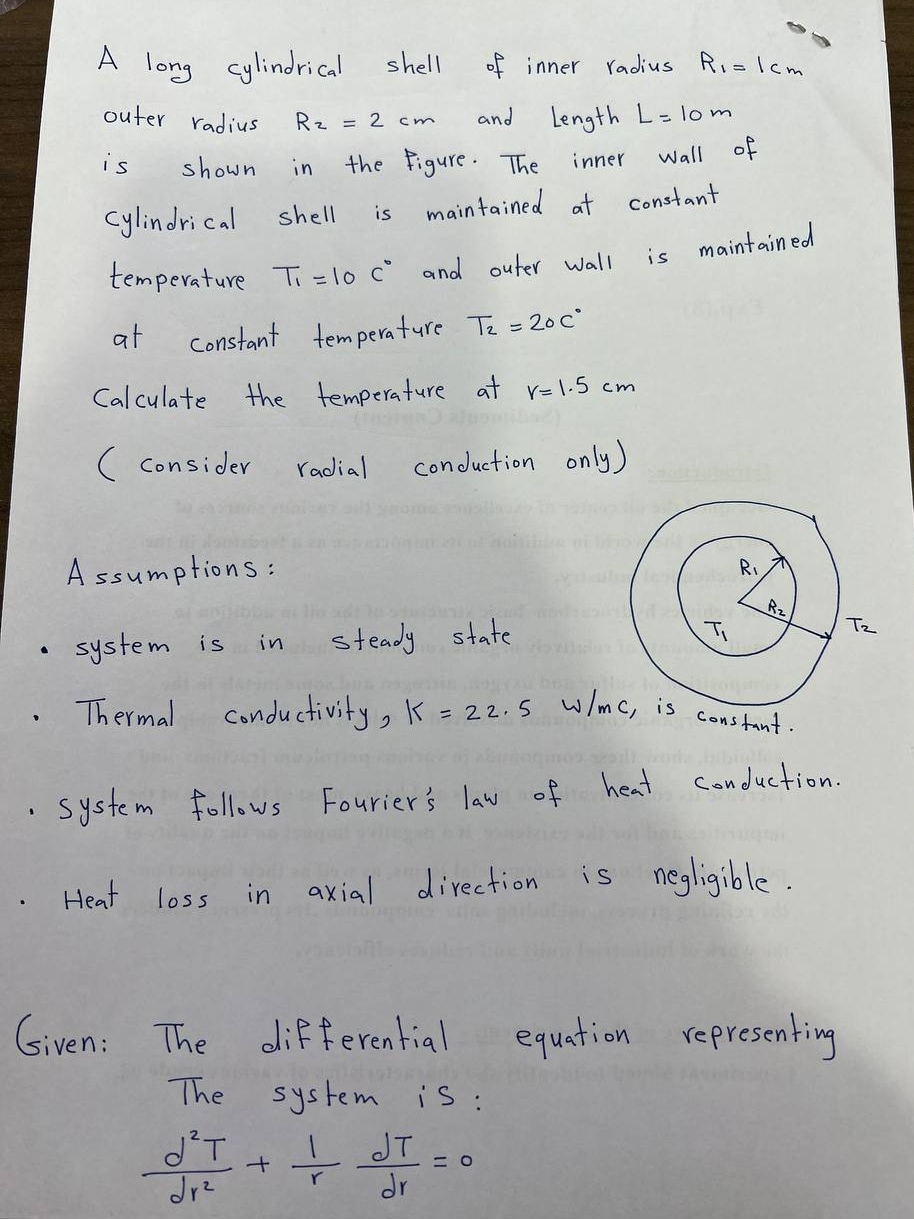 A long cylindrical shell of inner radius R₁ = 1 cm
outer radius R₂ = 2 cm and Length L = 10 m
is shown in the Figure. The inner wall of
cylindrical shell is maintained at constant
temperature T₁ = 10 C° and outer wall is maintained
at constant temperature T₂ = 20 C°
Calculate the temperature at r = 1.5 cm
( consider radial conduction only)
R₁
R₂
T₁
T₂
Assumptions:
• system is in steady state
• Thermal conductivity, K = 22.5 W/mC, is constant.
• system follows Fourier's law of heat conduction.
• Heat loss in axial direction is negligible.
Given: The differential equation representing
The system is:
d²T/dr² + 1/r dT/dr = 0